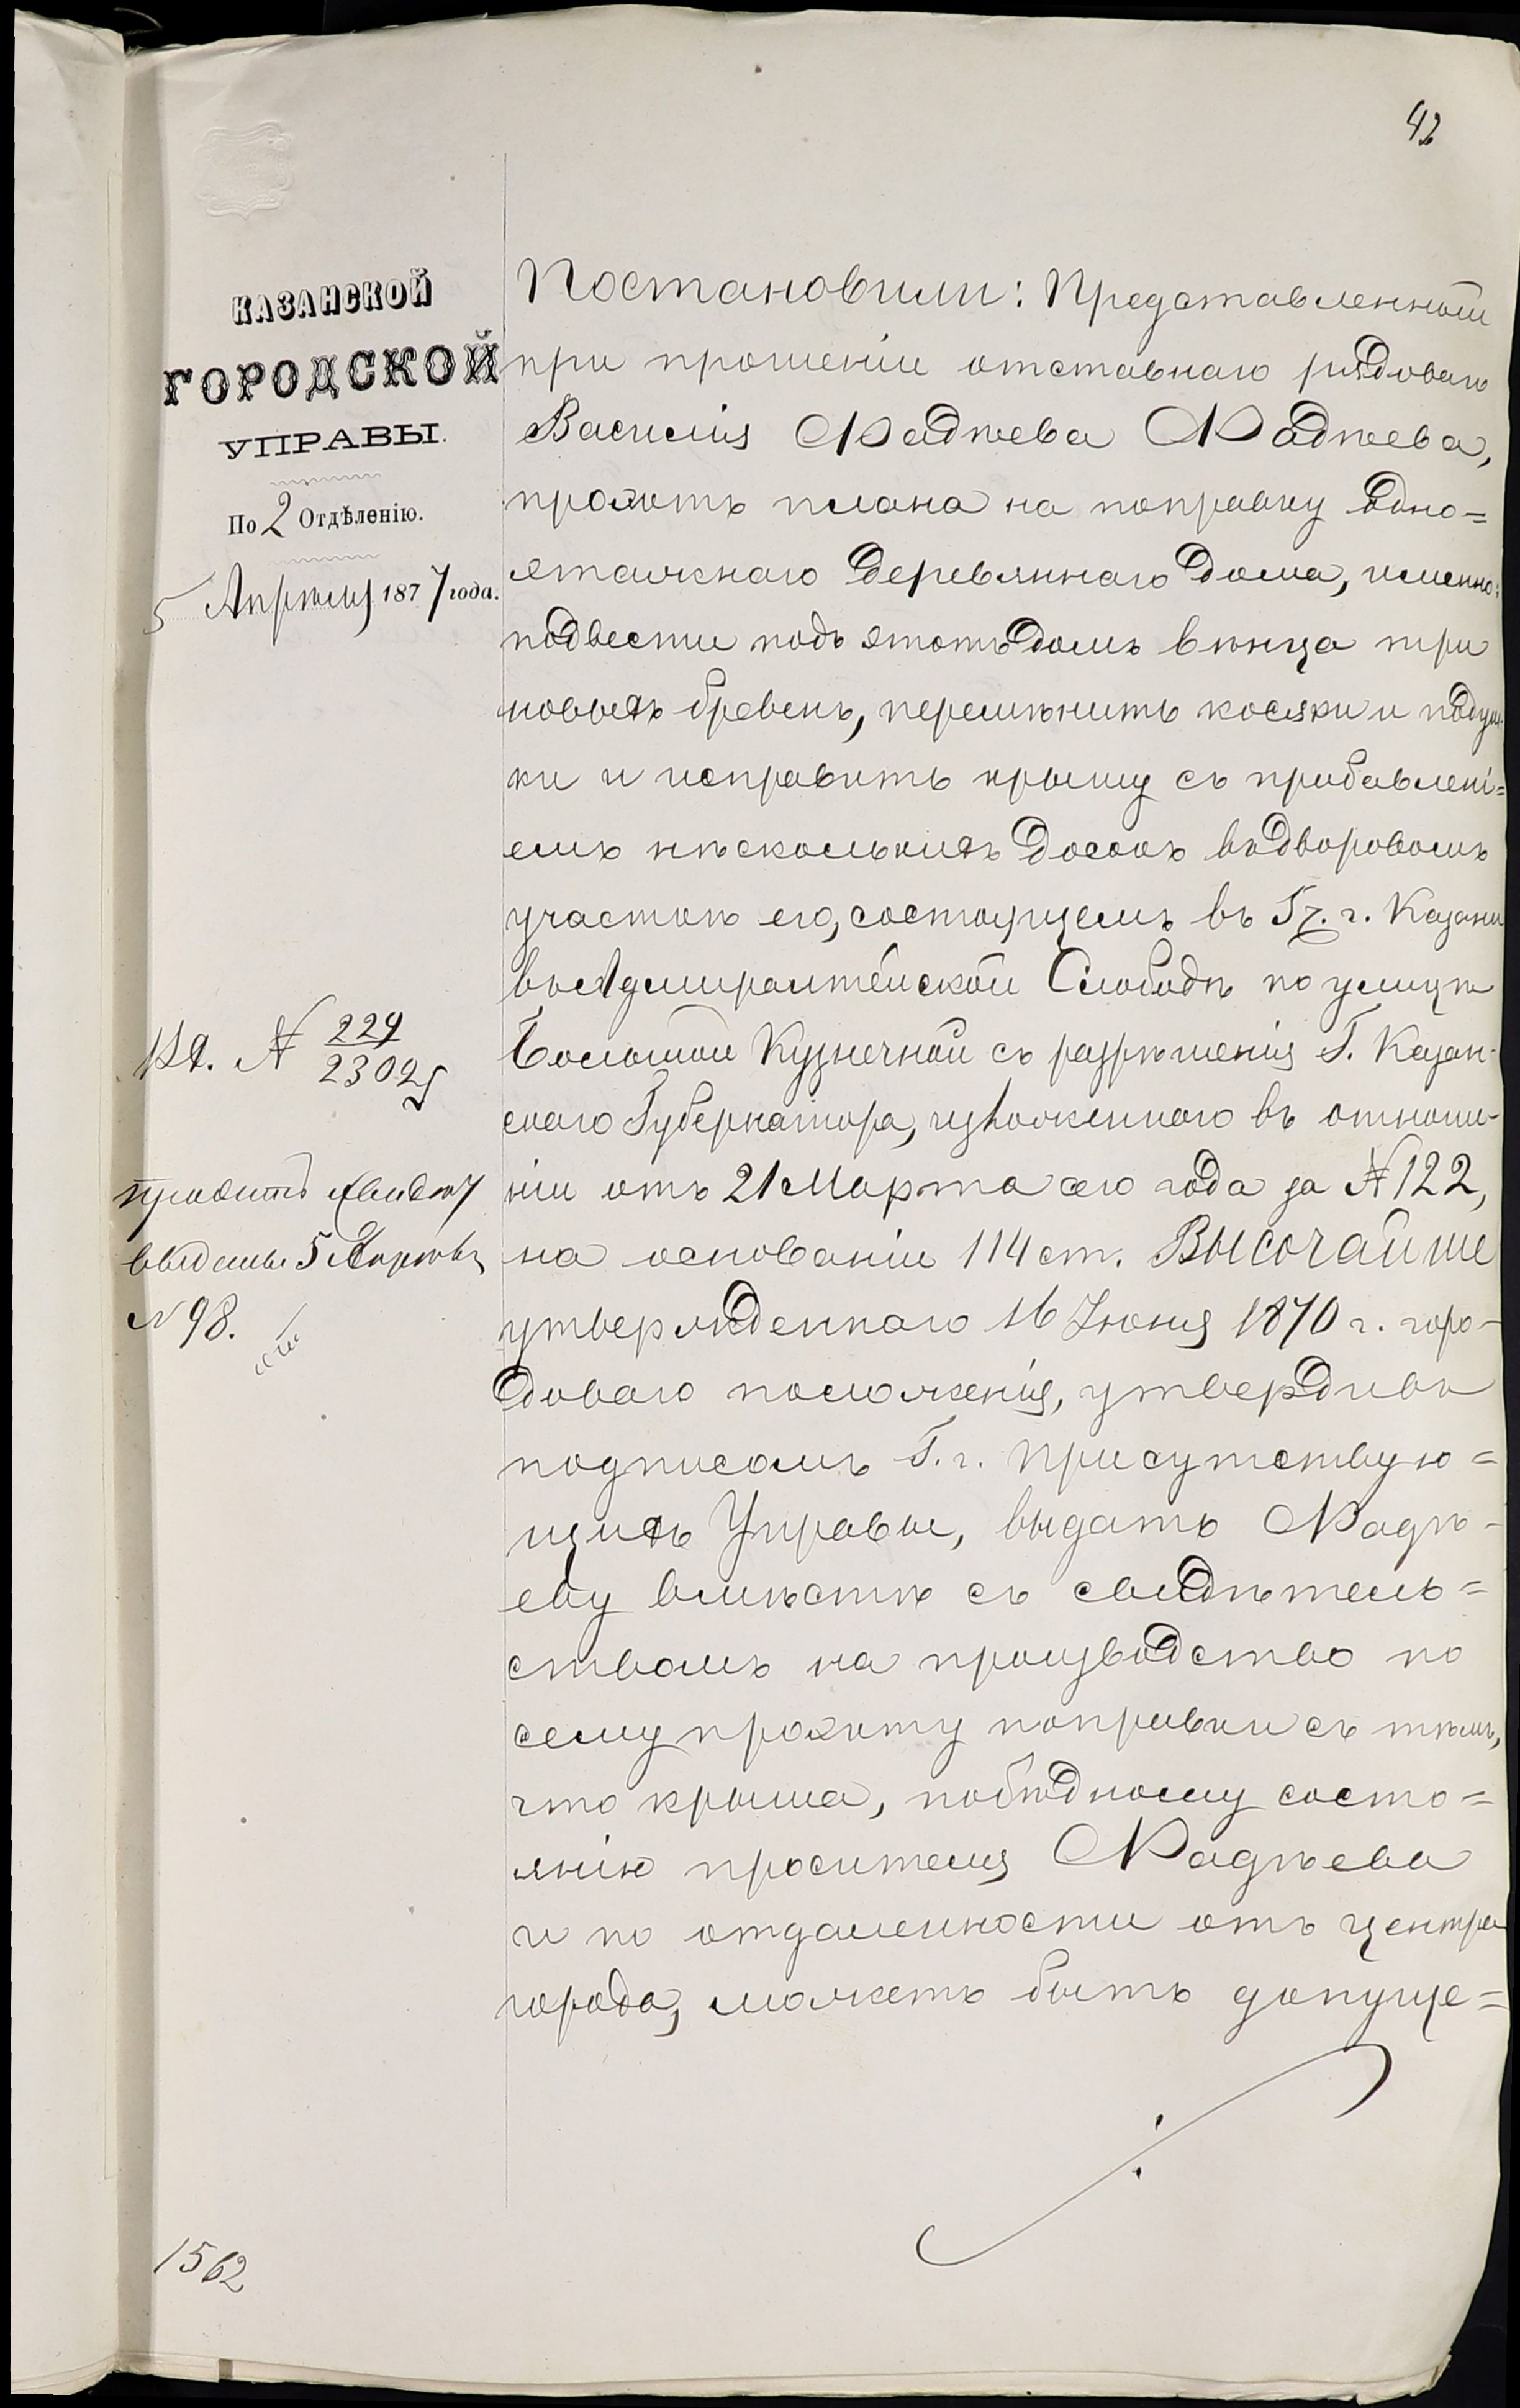 42
КАЗАНСКОЙ
ГОРОДСКОЙ
УПРАВЫ.
По 2 Отдѣленію.
5 Апрѣля 1877 года.
Постановили: Представленный
при прошеніи отставнаго рядоваго
Василія Фадѣева Фадѣева,
проэктъ плана на поправку одно=
этажнаго деревяннаго дома, именно:
подвести подъ этотъ домъ вѣнца три
новыхъ бревенъ, перемѣнить косяки и подуш-
ки и исправить крышу съ прибавлені=
емъ нѣсколькихъ досокъ въ дворовомъ
участкѣ его, состоящемъ въ 5 ч. г. Казани
въ Адмиралтейской Слободѣ по улицѣ
Большой Кузнечной съ разрѣшенія Г. Казан-
скаго Губернатора, изложеннаго въ отноше-
ніи отъ 21 Марта сего года за № 122,
на основаніи 114 ст. Высочайше
утвержденнаго 16 Іюня 1870 г. горо-
доваго положенія, утвердивъ
подписомъ Г.г. Присутствую=
щихъ Управы, выдать Фадѣ-
еву вмѣстѣ съ свидѣтель=
ствомъ на производство по
сему проэкту поправки съ тѣмъ,
что крыша, по бѣдному состо=
янію просителя Фадѣева
и по отдаленности отъ центра
города, можетъ быть допуще=
№ 229
2302
5 Апрѣля
№ 98.
1562